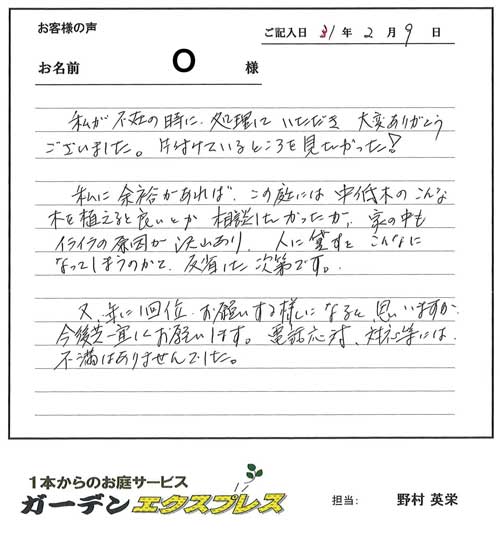 お客様の声
ご記入日 31年 2月 9日
お名前 O 様
私が不在の時に、処理していただき 大変ありがとう
ございました。片付けているところを見たかった!
私に余裕があれば、この庭には中低木のこんな
木を植えると良いとか 相談したかったが、家の中も
イライラの原因が沢山あり、人に貸すとこんなに
なってしまうのかと、反省した次第です。
又、年に1回位、お願いする様になると思いますが
今後共宜しくお願いします。電話応対、対応等には
不満はありませんでした。
1本からのお庭サービス
ガーデンエクスプレス
担当: 野村 英栄